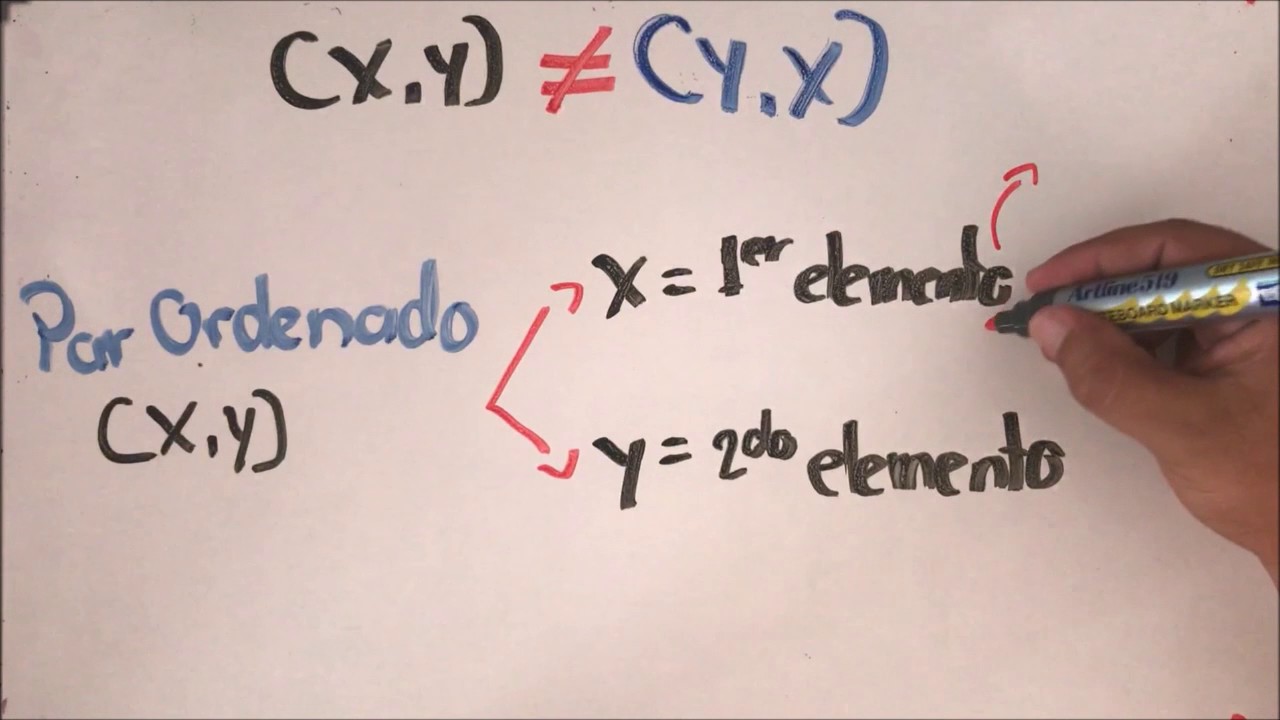 (X,y) ≠ (Y,X)
Par Ordenado
(X,y)
X = 1er elemento
y = 2do elemento
Artline 519
WHITEBOARD MARKER